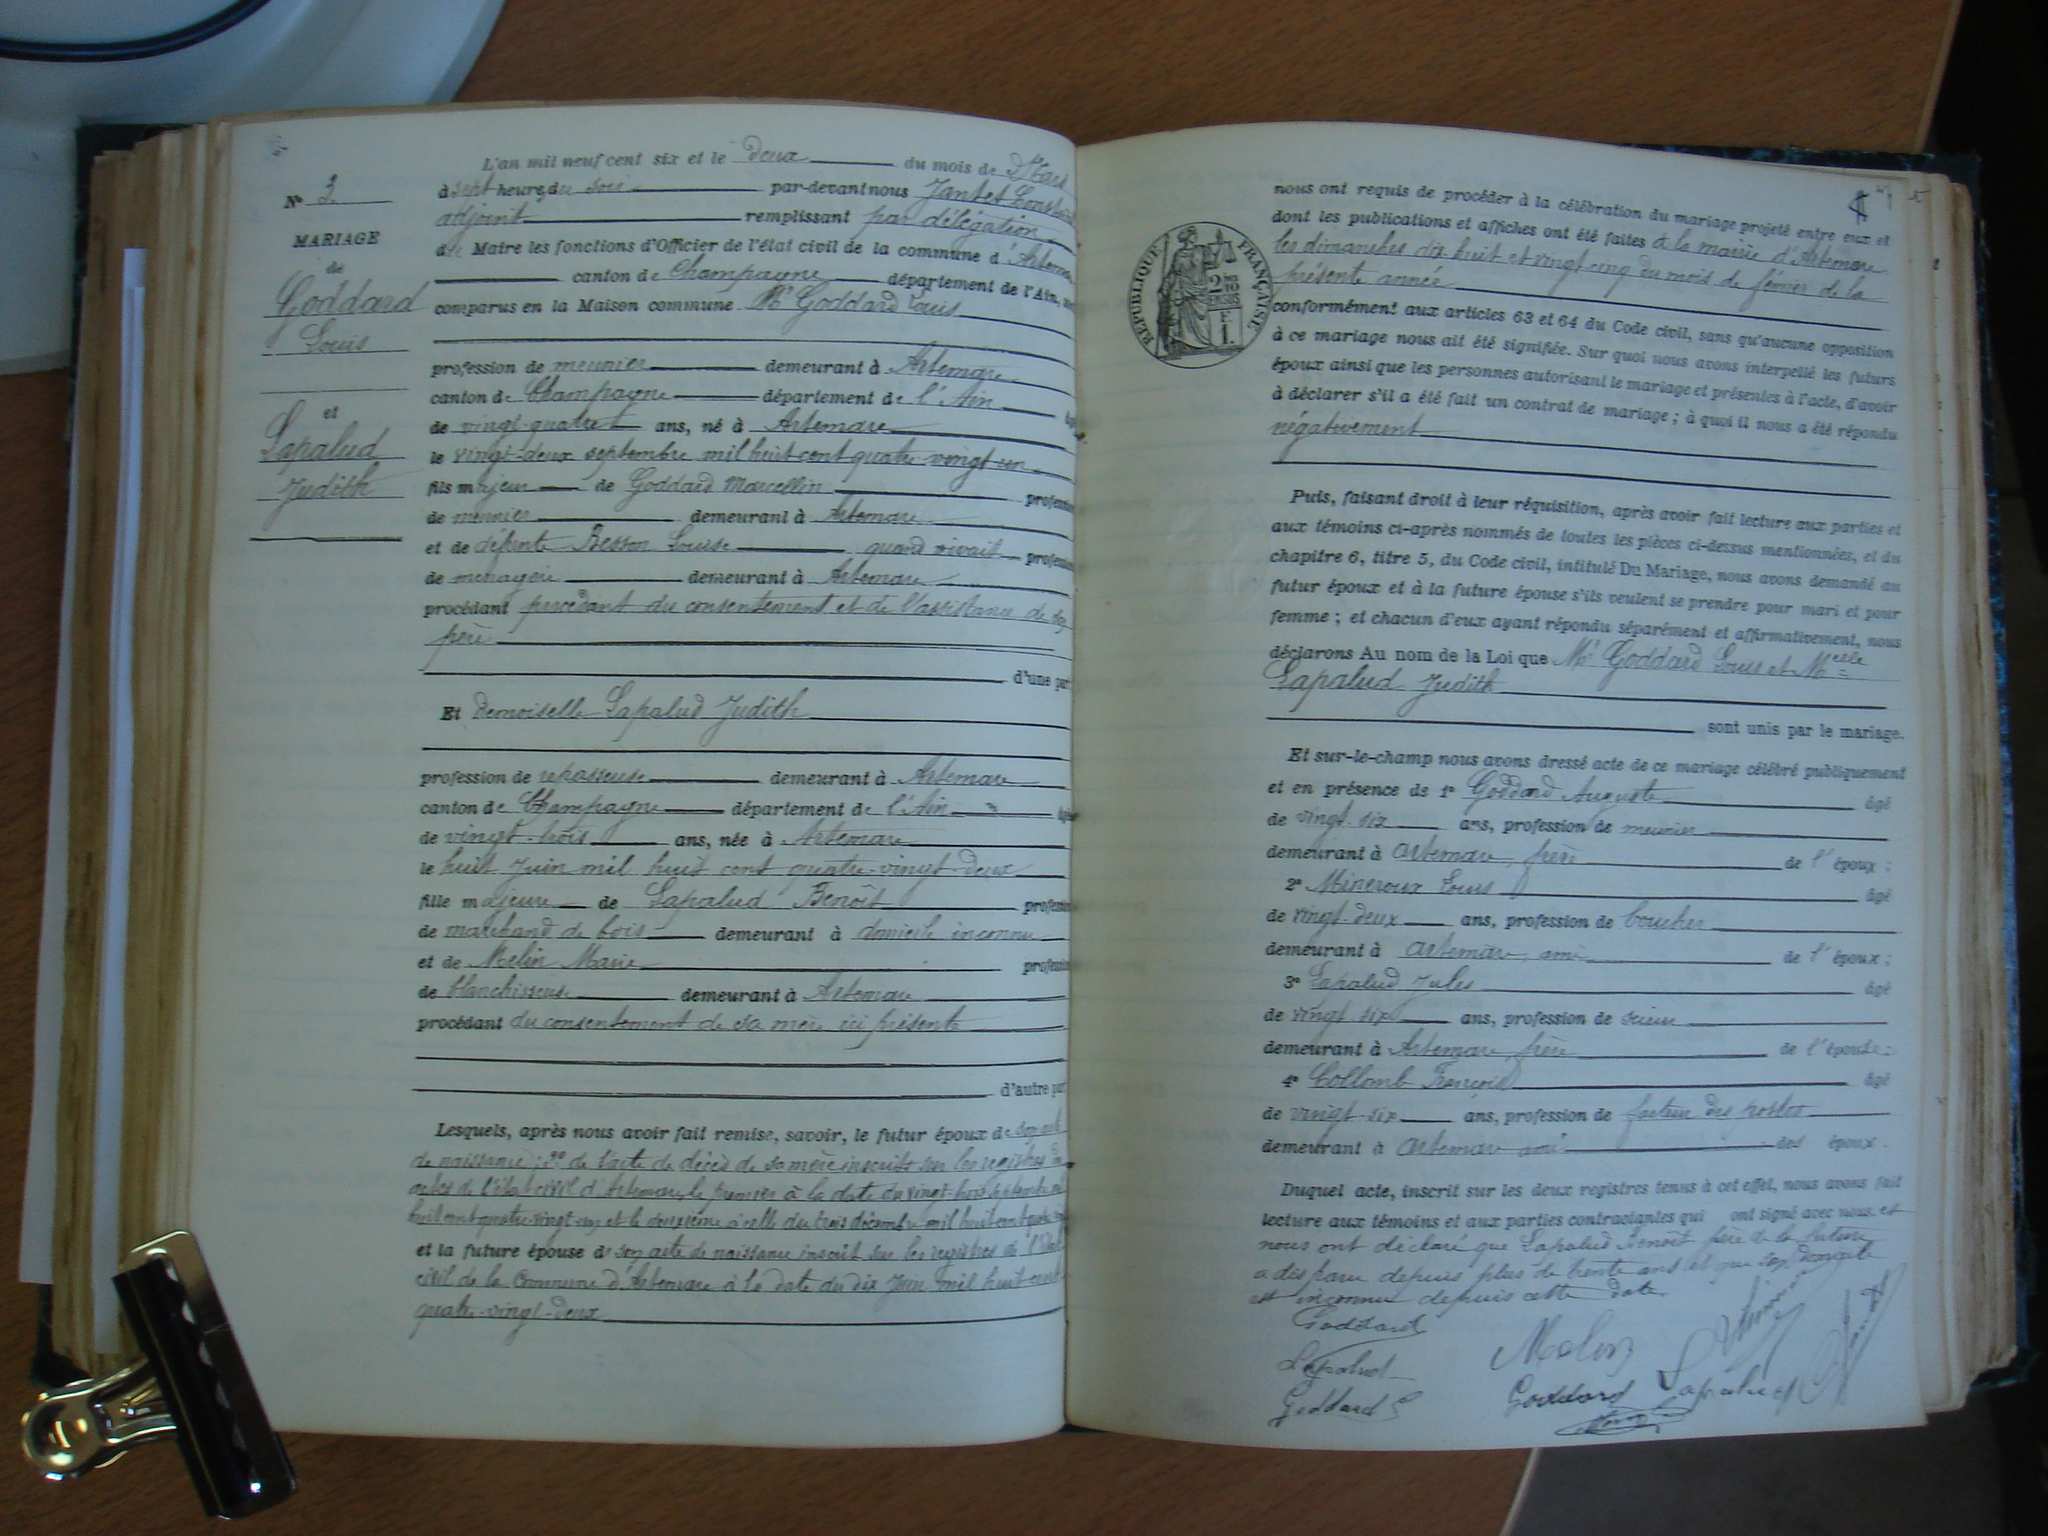 L'an mil neuf cent six et le deux du mois de Mars
N° 3
à sept heures du soir par-devant nous Jantet
adjoint remplissant par délégation
MARIAGE
du Maire les fonctions d'Officier de l'état civil de la commune d'Artemare
de
canton de Champagne département de l'Ain,
Goddard
comparus en la Maison commune Mr Goddard Louis
Louis
profession de meunier demeurant à Artemare
canton de Champagne département de l'Ain
et
de vingt-quatre ans, né à Artemare
Lapalud
le vingt-deux septembre mil huit cent quatre-vingt un
Judith
fils majeur de Goddard Marcellin profession
de meunier demeurant à Artemare
et de défunte Besson Louise quand vivait profession
de ménagère demeurant à Artemare
procédant procédant du consentement et de l'assistance de son
père
d'une part
Et demoiselle Lapalud Judith
profession de repasseuse demeurant à Artemare
canton de Champagne département de l'Ain
de vingt-trois ans, née à Artemare
le huit Juin mil huit cent quatre-vingt-deux
fille majeure de Lapalud Benoît profession
de marchand de bois demeurant à domicile inconnu
et de Melin Marie profession
de blanchisseuse demeurant à Artemare
procédant du consentement de sa mère ici présente
d'autre part
Lesquels, après nous avoir fait remise, savoir, le futur époux de son acte
de naissance; 2° de l'acte de décès de sa mère inscrits sur les registres de
actes de l'état civil d'Artemare, le premier à la date du vingt-trois septembre mil
huit cent quatre-vingt-un et le deuxième à celle du trois décembre mil huit cent
et la future épouse de son acte de naissance inscrit sur les registres de l'Etat
civil de la Commune d'Artemare à la date du dix Juin mil huit cent
quatre-vingt-deux
nous ont requis de procéder à la célébration du mariage projeté entre eux et
dont les publications et affiches ont été faites à la mairie d'Artemare
les dimanches dix-huit et vingt-cinq du mois de février de la
présente année
RÉPUBLIQUE FRANÇAISE
2/10 EN SUS
F
1.
conformément aux articles 63 et 64 du Code civil, sans qu'aucune opposition
à ce mariage nous ait été signifiée. Sur quoi nous avons interpellé les futurs
époux ainsi que les personnes autorisant le mariage et présentes à l'acte, d'avoir
à déclarer s'il a été fait un contrat de mariage; à quoi il nous a été répondu
négativement
Puis, faisant droit à leur réquisition, après avoir fait lecture aux parties et
aux témoins ci-après nommés de toutes les pièces ci-dessus mentionnées, et du
chapitre 6, titre 5, du Code civil, intitulé Du Mariage, nous avons demandé au
futur époux et à la future épouse s'ils veulent se prendre pour mari et pour
femme; et chacun d'eux ayant répondu séparément et affirmativement, nous
déclarons Au nom de la Loi que Mr Goddard Louis et Melle
Lapalud Judith
sont unis par le mariage.
Et sur-le-champ nous avons dressé acte de ce mariage célébré publiquement
et en présence de 1° Goddard Auguste âgé
de vingt-six ans, profession de meunier
demeurant à Artemare, frère de l'époux;
2° Mineroux Louis âgé
de vingt-deux ans, profession de boucher
demeurant à Artemare, ami de l'époux;
3° Lapalud Jules âgé
de vingt-six ans, profession de scieur
demeurant à Artemare, frère de l'épouse;
4° Collomb François âgé
de vingt-six ans, profession de facteur des postes
demeurant à Artemare ami des époux.
Duquel acte, inscrit sur les deux registres tenus à cet effet, nous avons fait
lecture aux témoins et aux parties contractantes qui ont signé avec nous et
nous ont déclaré que Lapalud Benoît père de la future
a disparu depuis plus de trente ans et que son domicile
est inconnu depuis cette date.
Goddard
Lapalud Melin
Goddard L Goddard Lapalud